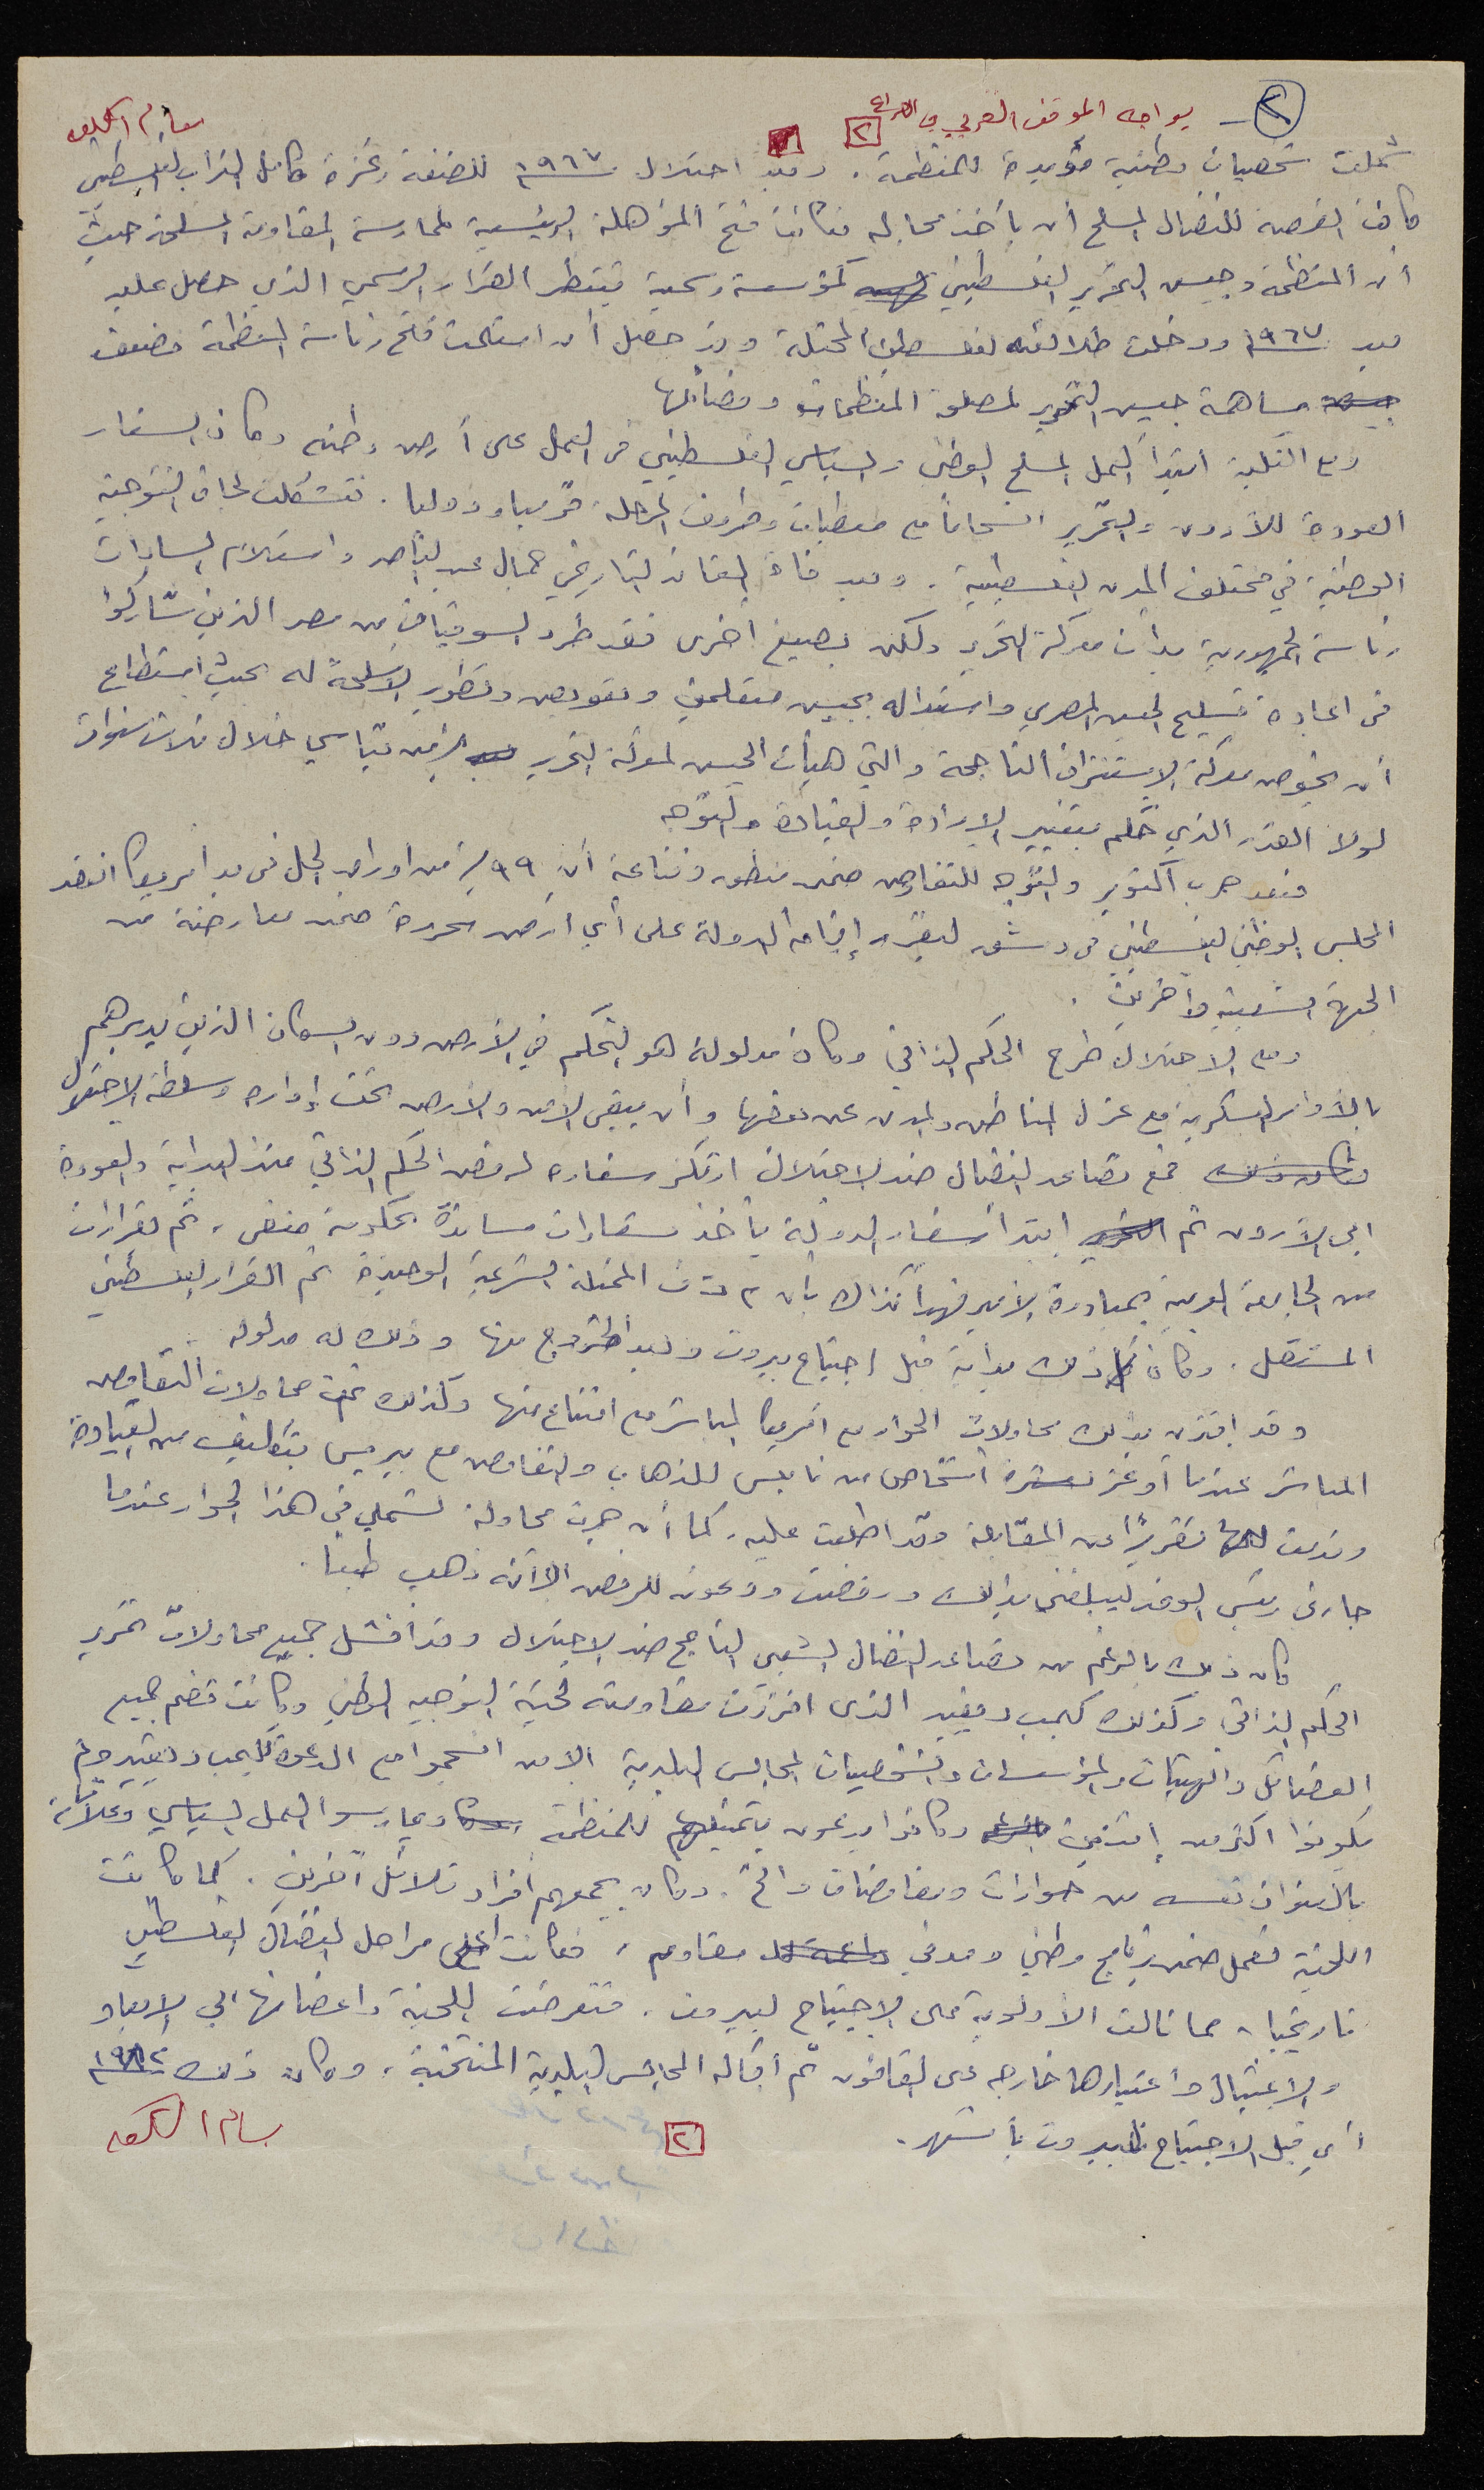 ٢ - يواجه الموقف العربي في الصراع ٢ بسام الشكعه
شملت شخصيات وطنية مؤيدة للمنظمة. وبعد احتلال ١٩٦٧ للضفة وغزة كامل التراب الفلسطيني
كانت الفرصة للنضال المسلح أن يأخذ مجاله فكانت فتح المؤهلة الرئيسية لممارسة المقاومة المسلحة حيث
أن المنظمة وجيش التحرير الفلسطيني كمؤسسة رسمية تنتظر القرار الرسمي الذي حصل عليه
بعد ١٩٦٧ ودخلت طلائعه لفلسطين المحتلة وقد حصل أن استلمت فتح رئاسة المنظمة فضعف
مساهمة جيش التحرير لمصلحة المنظمات وفصائلها
ومع النكبة ابتدأ العمل المسلح الوطني والسياسي الفلسطيني في العمل على أرض وطنه وكان الشعار
العودة للأردن والتحرير انسجاماً مع معطيات وظروف المرحلة قومياً ودولياً. فتشكلت لجان التوجيه
الوطنية في مختلف المدن الفلسطينية. وبعد وفاة القائد التاريخي جمال عبد الناصر واستلام السادات
رئاسة الجمهورية بدأت معركة التحرير ولكن بصيغ أخرى فقد طرد السوفيات من مصر الذين شاركوا
في اعادة تسليح الجيش المصري واستبداله بجيش متعلمين وتعويض وتطوير الأسلحة له بحيث استطاع
أن يخوض معركة الاستنزاف الناجحة والتي هيأت الجيش لمعركة التحرير بزمن قياسي خلال ثلاث سنوات
لولا القدر الذي حكم بتغيير الإرادة والقيادة والتوجه
فبعد حرب أكتوبر والتوجه للتفاوض ضمن منظور وقناعة أن ٩٩٪ من اوراق الحل في يد أمريكا انعقد
المجلس الوطني الفلسطيني في دمشق ليقرر إقامة الدولة على أي أرض محررة ضمن معارضة من
الجبهة الشعبية وآخرين.
ومع الاحتلال طرح الحكم الذاتي وكان مدلوله هو التحكم في الأرض دون السكان الذين يديرهم
بالأوامر العسكرية مع عزل المناطق والمدن عن بعضها وأن يبقى الأمن والأرض تحت إدارة وسلطة الاحتلال
فمع تصاعد النضال ضد الاحتلال ارتكز شعاره لرفض الحكم الذاتي منذ البداية والعودة
الى الأردن ثم ابتدأ شعار الدولة يأخذ شعارات مساندة بحكومة منفى، ثم بقرارات
من الجامعة العربية بمبادرة الأمير فهد آنذاك بأن م ت ف الممثلة الشرعية الوحيدة ثم القرار الفلسطيني
المستقل. وكان ذلك بداية قبل اجتياح بيروت وبعد الخروج منها وذلك له مدلوله.
وقد اقترن بذلك محاولات الحوار مع امريكا المباشر مع امتناع منها وكذلك تمت محاولات التفاوض
المباشر عندما أوعز لعشرة أشخاص من نابلس للذهاب والتفاوض مع بيريس بتكليف من القيادة
وقدمت لها تقريراً عن المقابلة وقد اطلعت عليه. كما أن جرت محاولة لشملي في هذا الحوار عندما
جاءني رئيس الوفد ليبلغني بذلك ورفضت ودعوته للرفض الا انه ذهب طبعا.
كان ذلك بالرغم من تصاعد النضال الشعبي الناجح ضد الاحتلال وقد افشل جميع محاولات تمرير
الحكم الذاتي وكذلك كامب ديفيد الذي افرزت مقاومته لجنة التوجيه الوطني وكانت تضم جميع
الفصائل والهيئات والمؤسسات والشخصيات المجالس البلدية الا من انسجموا مع الدعوة لكامب ديفيد ولم
يكونوا اكثر من إثنين وكانوا يدعون بتمثيلهم للمنظمة ويمارسوا العمل السياسي وعلانية
بالعنوان نفسه من حوارات ومفاوضات والخ. وكان يجمعهم أفراد قلائل آخرين. كما كانت
اللجنة تعمل ضمن برنامج وطني ومدني مقاوم، فكانت اعلى مراحل النضال الفلسطيني
تاريخيا، مما نالت الأولوية على الاجتياح لبيروت. فتعرضت اللجنة واعضائها الى الابعاد
والاغتيال واعتبارها خارجه على القانون ثم أقاله المجالس البلدية المنتخبة، وكان ذلك ١٩٨٢
أي قبل الاجتياح لبيروت بأشهر.
٢ بسام الشكعه